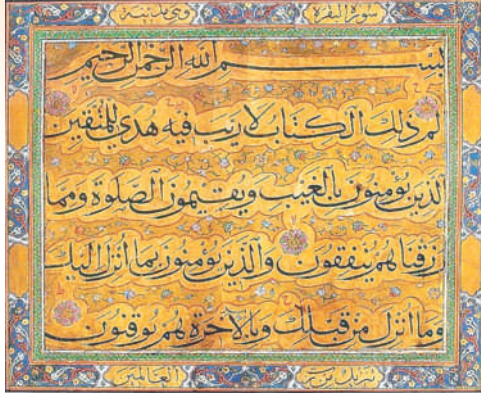 سورة البقرة وهي مدنية
بسم الله الرحمن الرحيم
الم ذلك الكتاب لا ريب فيه هدي للمتقين
الذين يؤمنون بالغيب ويقيمون الصلوة ومما
رزقناهم ينفقون والذين يؤمنون بما أنزل اليك
وما أنزل من قبلك وبالآخرة هم يوقنون
تنزيل من رب العالمين